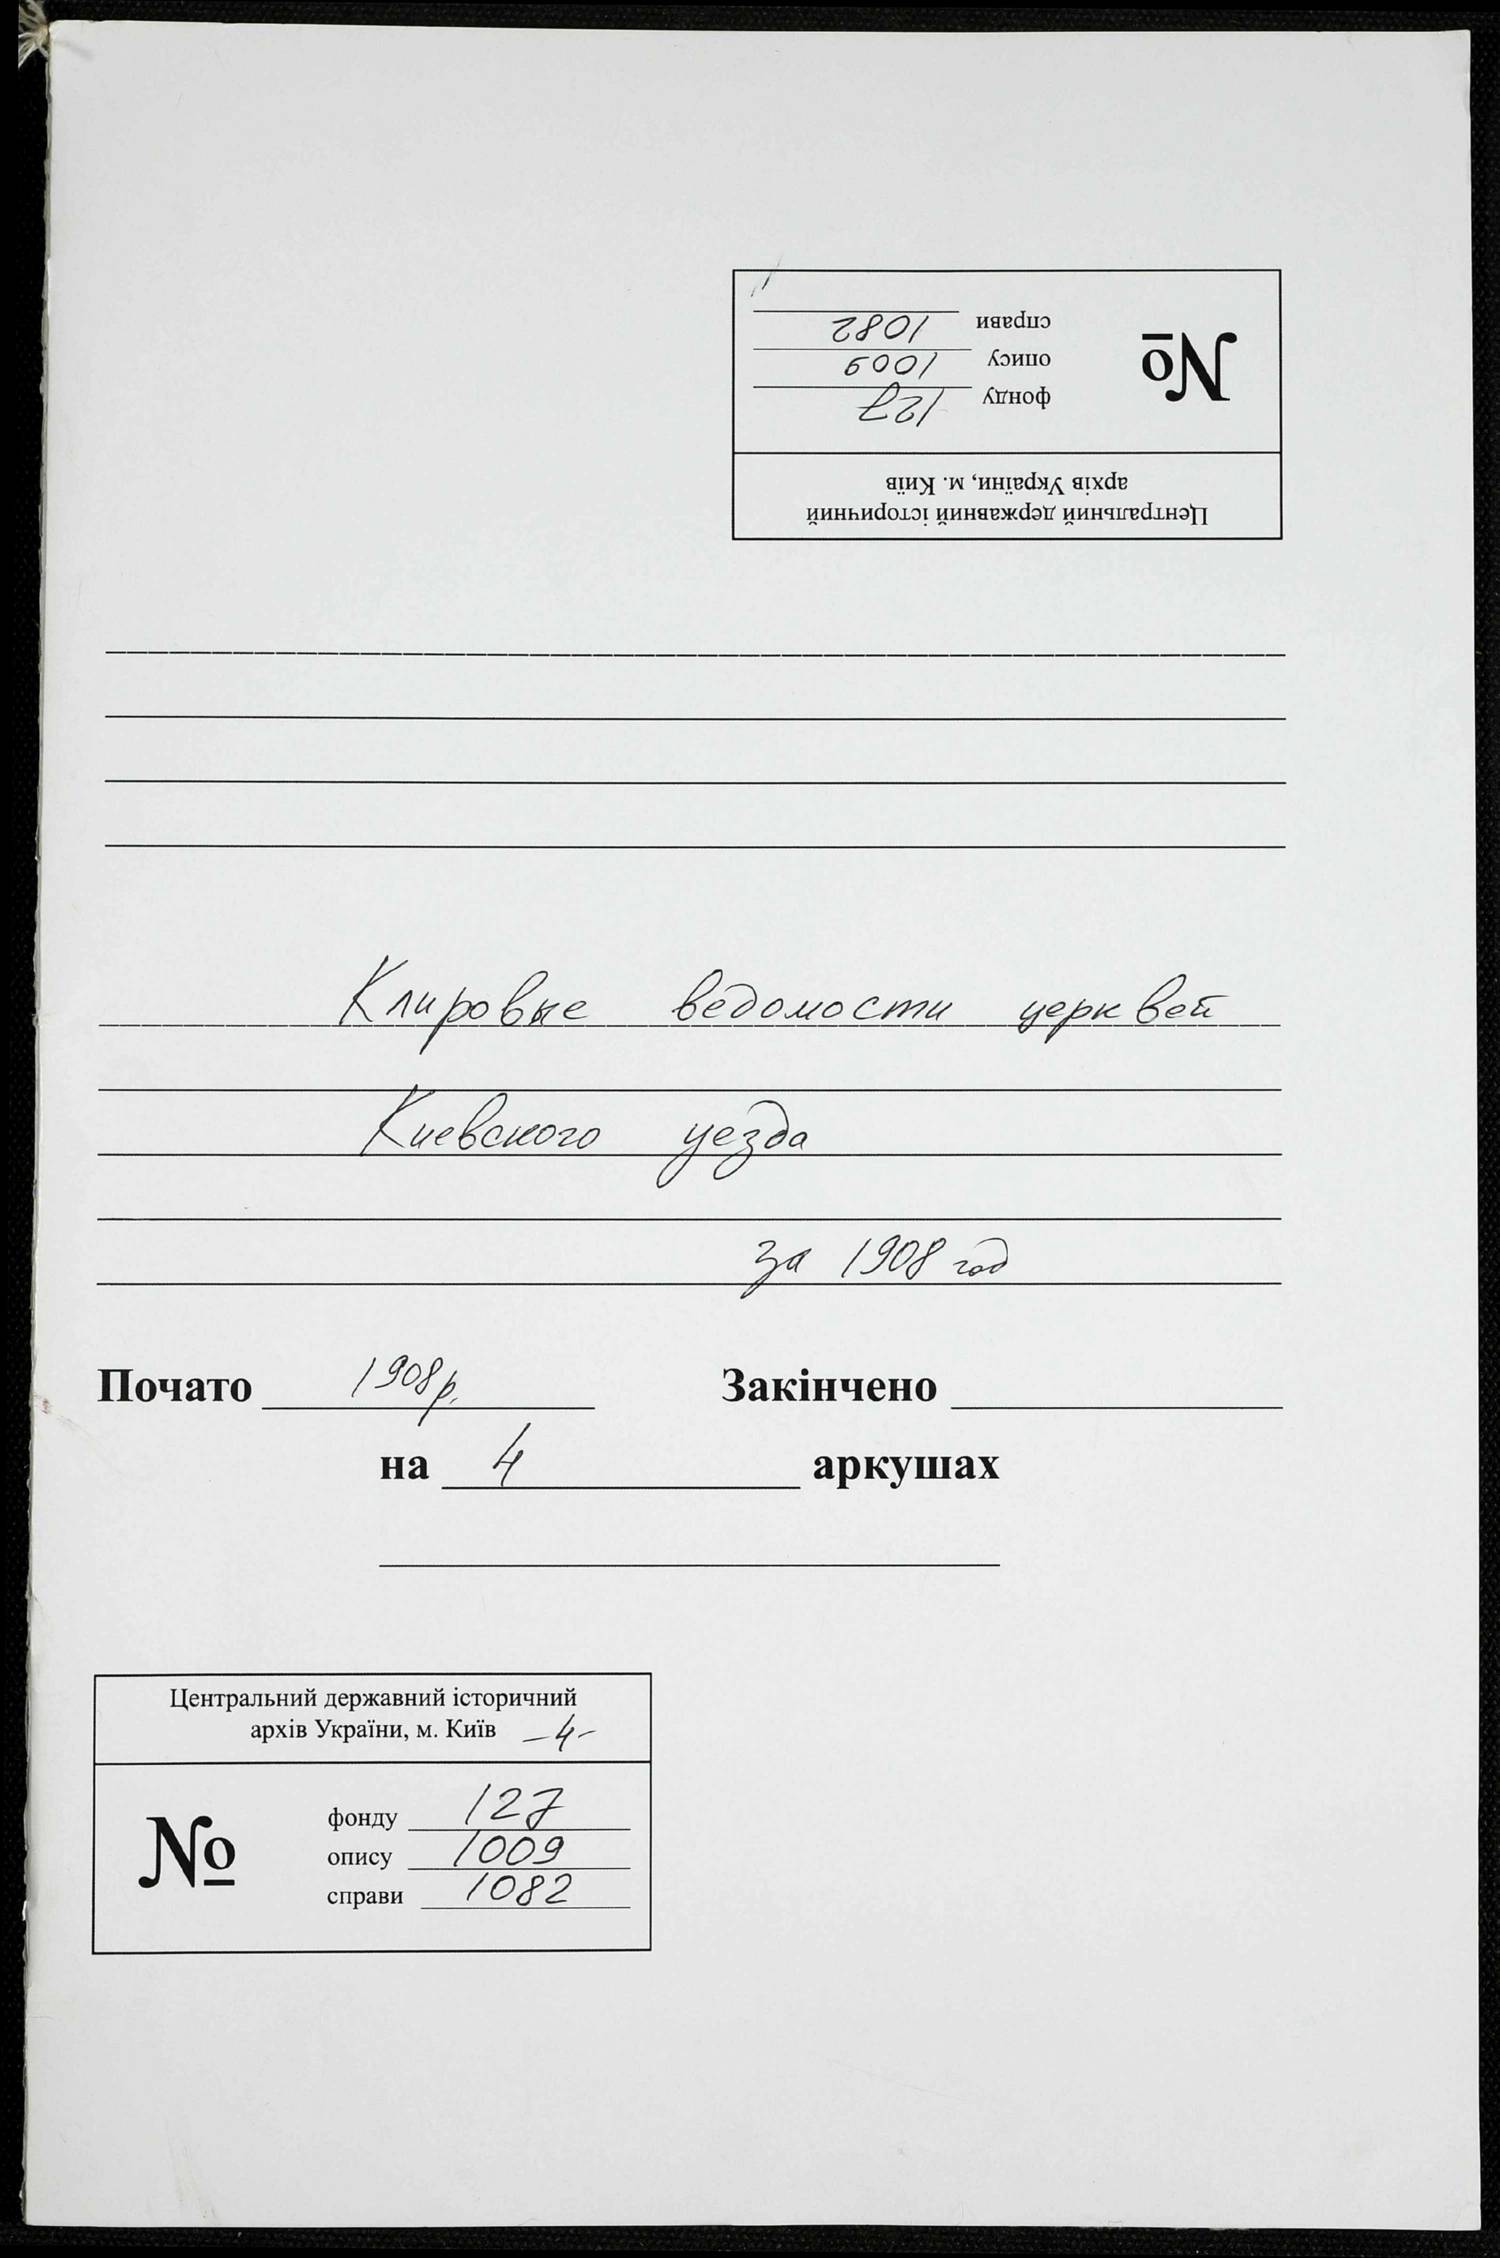 Центральний державний історичний
архів України, м. Київ
№
фонду 127
опису 1009
справи 1082
Клировые ведомости церквей
Киевского уезда
за 1908 год
Почато 1908 р. Закінчено
на 4 аркушах
Центральний державний історичний
архів України, м. Київ -4-
№
фонду 127
опису 1009
справи 1082